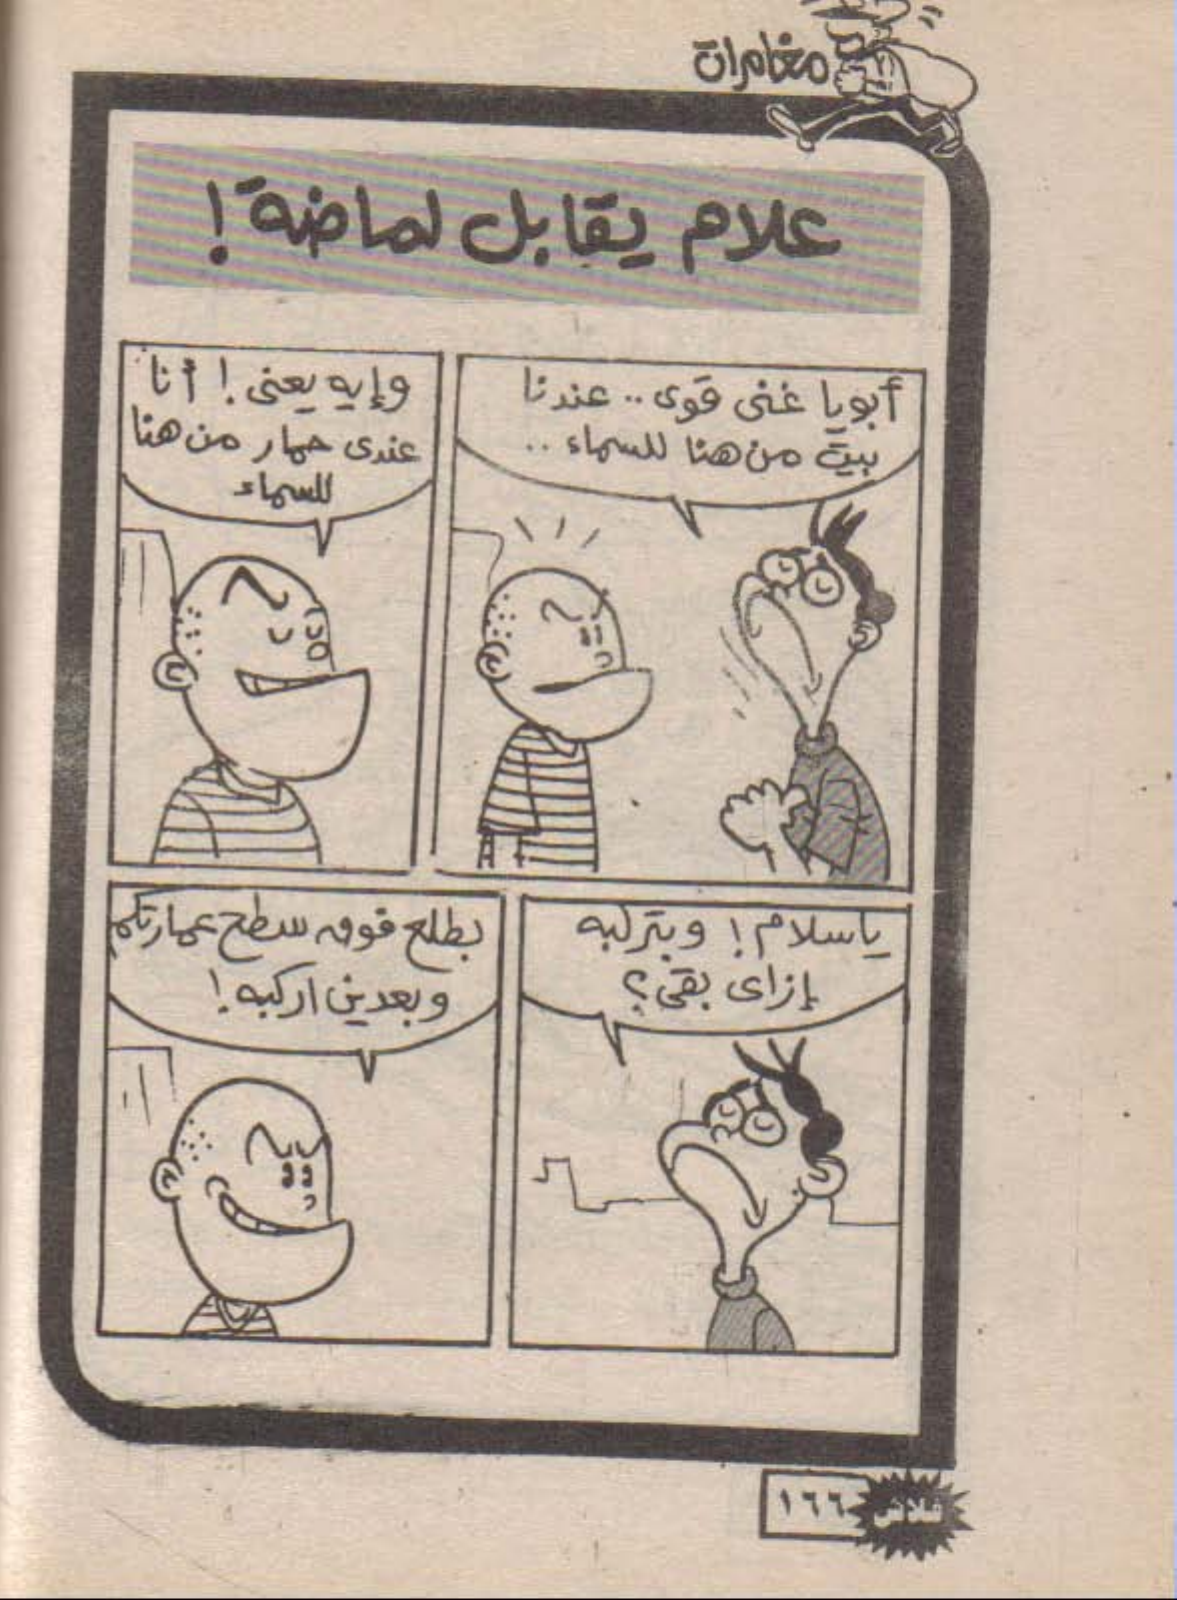 مغامرات
علام يقابل لماضة !
أبويا غنى قوى .. عندنا
بيت من هنا للسماء ..
وإيه يعنى ! أنا
عندى حمار من هنا
للسماء
ياسلام ! وبتركبه
إزاى بقى ؟
بطلع فوق سطح عمارتكم
وبعدين اركبه !
فلاش
١٦٦